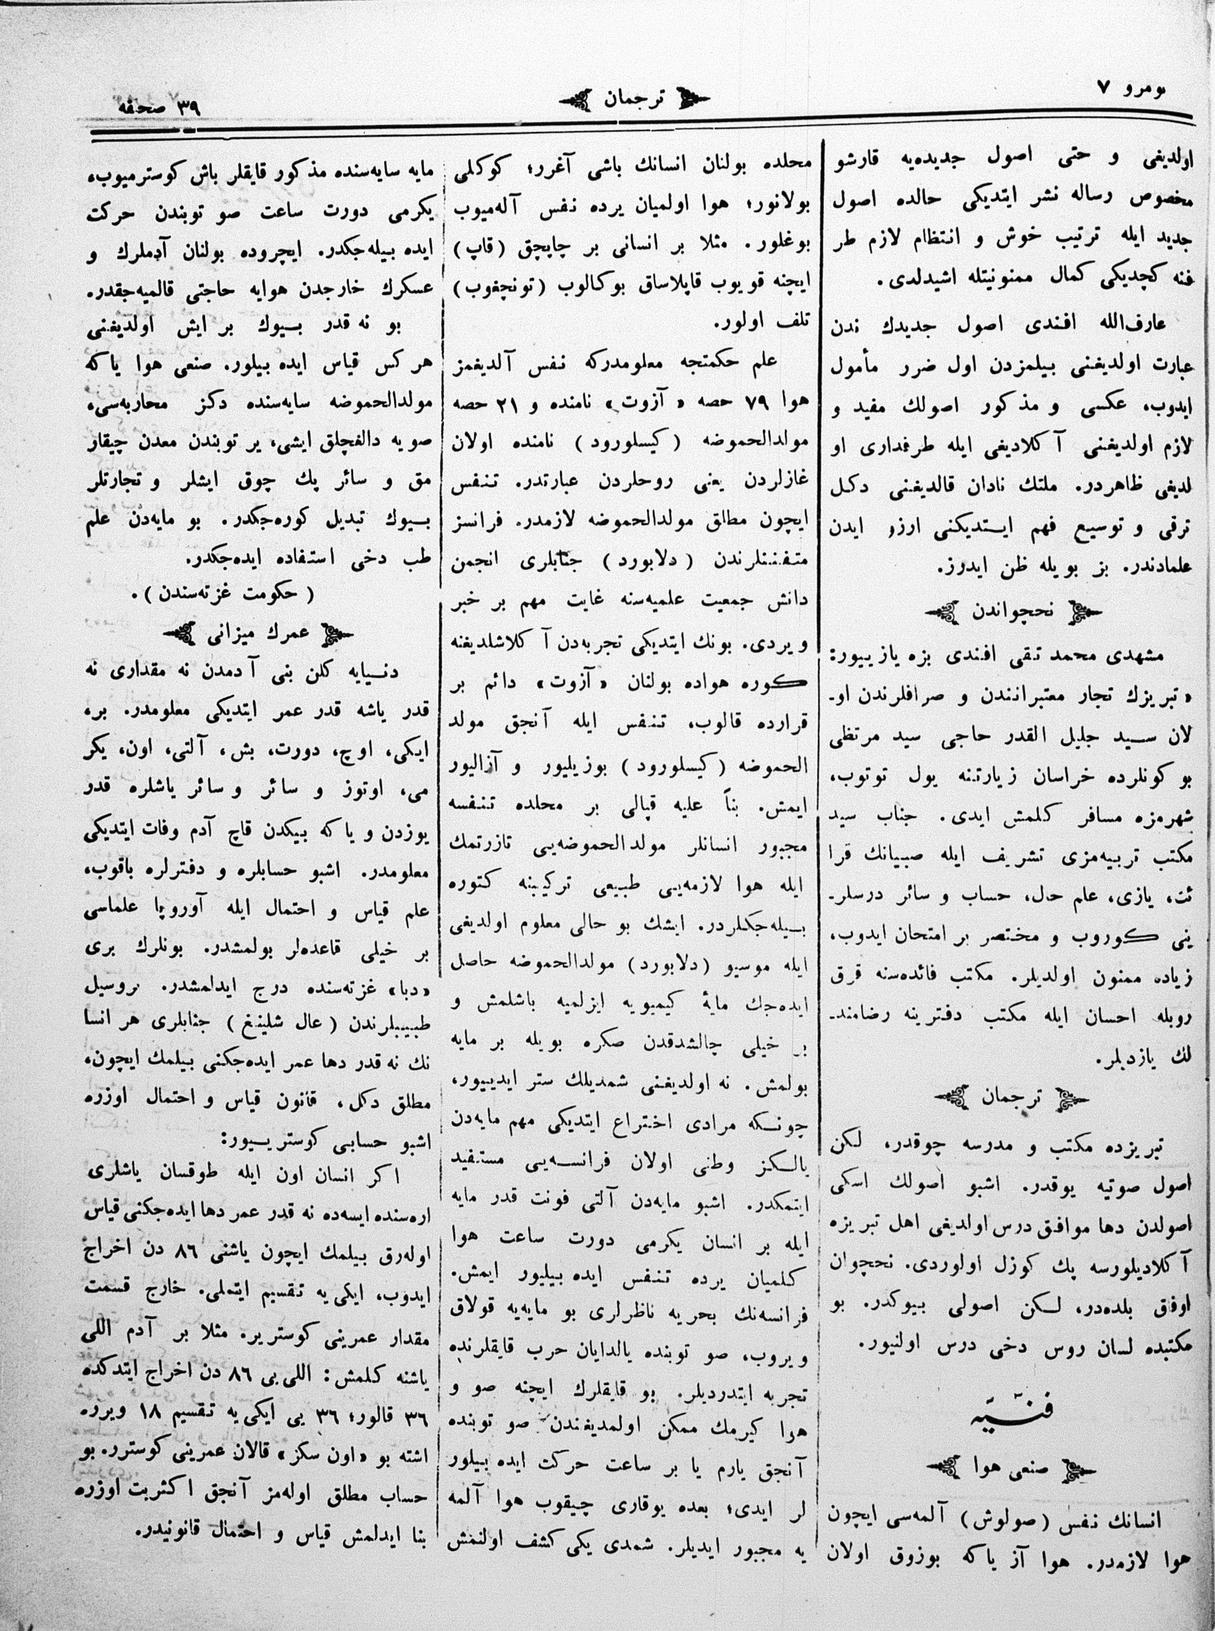 نومرو ٧
ترجمان
٣٩ صحفه
اولدیغی و حتی اصول جدیده‌یه قارشو
مخصوص رساله نشر ایتدیکی حالده اصول
جدید ایله ترتیب خوش و انتظام لازم طر
فنه کچدیکی کمال ممنونیتله اشیدلدی.
عارف‌الله افندی اصول جدیدك ندن
عبارت اولدیغنی بیلمزدن اول ضرر مأمول
ایدوب، عکسی و مذکور اصولك مفید و
لازم اولدیغنی آکلادیغی ایله طرفداری او
لدیغی ظاهردر. ملتك نادان قالدیغنی دکل
ترقی و توسیع فهم ایستدیکنی ارزو ایدن
علمادندر. بز بویله ظن ایدرز.
نخچواندن
مشهدی محمد تقی افندی بزه یازییور:
«تبریزك تجار معتبرانندن و صرافلرندن او-
لان سید جلیل القدر حاجی سید مرتظی
بو کونلرده خراسان زیارتنه یول توتوب،
شهرمزه مسافر کلمش ایدی. جناب سید
مکتب تربیه‌مزی تشریف ایله صبیانك قرا
ئت، یازی، علم حال، حساب و سائر درسلر-
ینی کوروب و مختصر بر امتحان ایدوب،
زیاده ممنون اولدیلر. مکتب فائده‌سنه قرق
روبله احسان ایله مکتب دفترینه رضامند-
لك یازدیلر.
ترجمان
تبریزده مکتب و مدرسه چوقدر، لکن
اصول صوتیه یوقدر. اشبو اصولك اسکی
اصولدن دها موافق درس اولدیغی اهل تبریزه
آکلادیلورسه پك کوزل اولوردی. نخچوان
اوفاق بلده‌در، لکن اصولی بیوکدر. بو
مکتبده لسان روس دخی درس اولنیور.
فنیّه
صنعی هوا
انسانك نفس (صولوش) آلمه‌سی ایچون
هوا لازمدر. هوا آز یاکه بوزوق اولان
محلده بولنان انسانك باشی آغرر؛ کوکلی
بولانور؛ هوا اولمیان یرده نفس آله‌میوب
بوغلور. مثلا بر انسانی بر چاپچق (قاپ)
ایچنه قویوب قاپلاساق بوکالوب (تونچغوب)
تلف اولور.
علم حکمتجه معلومدرکه نفس آلدیغمز
هوا ٧٩ حصه «آزوت» نامنده و ٢١ حصه
مولدالحموضه (کیسلورود) نامنده اولان
غازلردن یعنی روحلردن عبارتدر. تنفس
ایچون مطلق مولدالحموضه لازمدر. فرانسز
متفننلرندن (دلابورد) جنابلری انجمن
دانش جمعیت علمیه‌سنه غایت مهم بر خبر
ویردی. بونك ایتدیکی تجربه‌دن آکلاشلدیغنه
کوره هواده بولنان «آزوت» دائم بر
قرارده قالوب، تنفس ایله آنجق مولد
الحموضه (کیسلورود) بوزیلیور و آزالیور
ایمش. بناً علیه قپالی بر محلده تنفسه
مجبور انسانلر مولدالحموضه‌یی تازرتمك
ایله هوا لازمه‌یی طبیعی ترکیبنه کتوره
بیله‌جکلردر. ایشك بو حالی معلوم اولدیغی
ایله موسیو (دلابورد) مولدالحموضه حاصل
ایده‌جك مایهٔ کیمیویه ایزلمیه باشلمش و
بر خیلی چالشدقدن صکره بویله بر مایه
بولمش. نه اولدیغنی شمدیلك ستر ایدییور،
چونکه مرادی اختراع ایتدیکی مهم مایه‌دن
یالکز وطنی اولان فرانسه‌یی مستفید
ایتمکدر. اشبو مایه‌دن آلتی فونت قدر مایه
ایله بر انسان یکرمی دورت ساعت هوا
کلمیان یرده تنفس ایده بیلیور ایمش.
فرانسه‌نك بحریه ناظرلری بو مایه‌یه قولاق
ویروب، صو توبنده یالدایان حرب قایقلرنده
تجربه ایتدردیلر. بو قایقلرك ایچنه صو و
هوا کیرمك ممکن اولمدیغندن صو توبنده
آنجق یارم یا بر ساعت حرکت ایده بیلور
لر ایدی؛ بعده یوقاری چیقوب هوا آلمه
یه مجبور ایدیلر. شمدی یکی کشف اولنمش
مایه سایه‌سنده مذکور قایقلر باش کوسترمیوب،
یکرمی دورت ساعت صو توبندن حرکت
ایده بیله‌جکدر. ایچروده بولنان آدملرك و
عسکرك خارجدن هوایه حاجتی قالمیه‌جقدر.
بو نه قدر بیوك بر ایش اولدیغنی
هر کس قیاس ایده بیلور. صنعی هوا یاکه
مولدالحموضه سایه‌سنده دکز محاربه‌سی،
صویه دالغچلق ایشی، یر توبندن معدن چیقار
مق و سائر پك چوق ایشلر و تجارتلر
بیوك تبدیل کوره‌جکدر. بو مایه‌دن علم
طب دخی استفاده ایده‌جکدر.
(حکومت غزته‌سندن).
عمرك میزانی
دنیایه کلن بنی آدمدن نه مقداری نه
قدر یاشه قدر عمر ایتدیکی معلومدر. بر،
ایکی، اوچ، دورت، بش، آلتی، اون، یکر
می، اوتوز و سائر و سائر یاشلره قدر
یوزدن و یاکه بیکدن قاچ آدم وفات ایتدیکی
معلومدر. اشبو حسابلره و دفترلره باقوب،
علم قیاس و احتمال ایله آوروپا علماسی
بر خیلی قاعده‌لر بولمشدر. بونلرك بری
«دبا» غزته‌سنده درج ایدلمشدر. بروسیل
طبیبلرندن (عال شلینغ) جنابلری هر انسا
نك نه قدر دها عمر ایده‌جکنی بیلمك ایچون،
مطلق دکل، قانون قیاس و احتمال اوزره
اشبو حسابی کوستریور:
اکر انسان اون ایله طوقسان یاشلری
اره‌سنده ایسه‌ده نه قدر عمر دها ایده‌جکنی قیاس
اوله‌رق بیلمك ایچون یاشنی ٨٦ دن اخراج
ایدوب، ایکی‌یه تقسیم ایتملی. خارج قسمت
مقدار عمرینی کوستریر. مثلا بر آدم اللی
یاشنه کلمش: اللی‌یی ٨٦ دن اخراج ایتدکده
٣٦ قالور؛ ٣٦ یی ایکی‌یه تقسیم ١٨ ویرره
اشته بو «اون سکز» قالان عمرینی کوسترر. بو
حساب مطلق اوله‌مز آنجق اکثریت اوزره
بنا ایدلمش قیاس و احتمال قانونیدر.